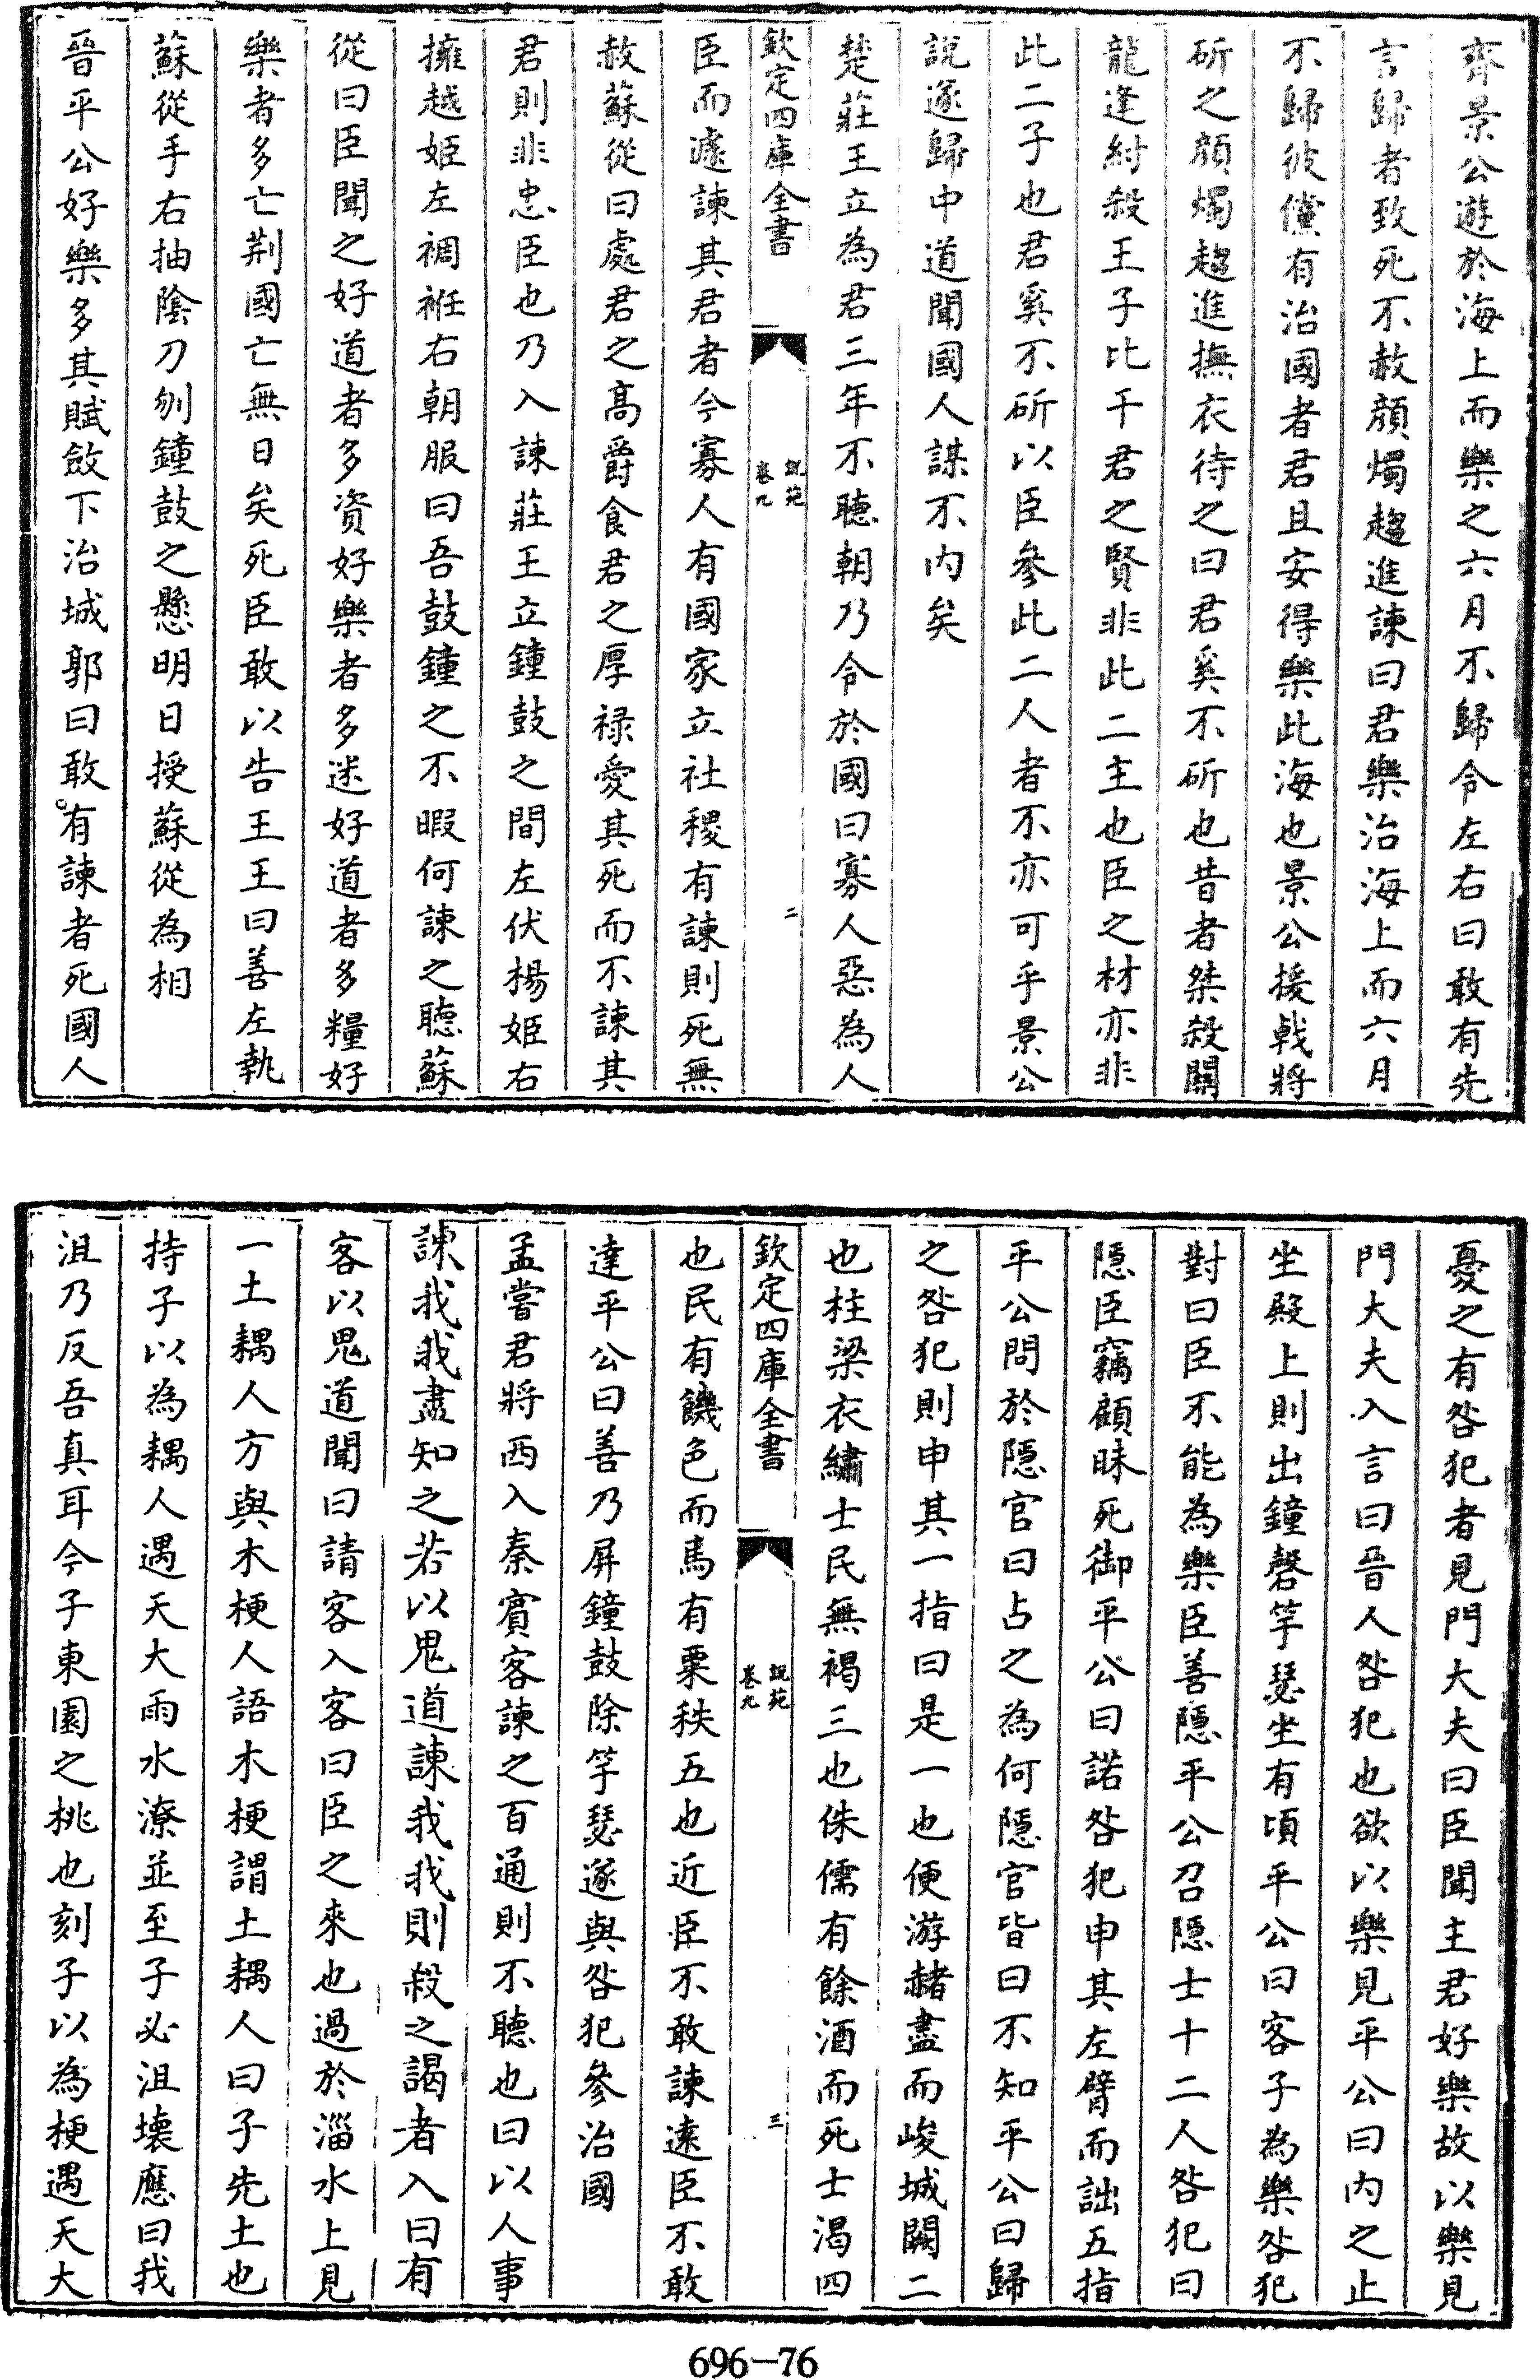 齊景公遊於海上而樂之六月不歸令左右曰敢有先
言歸者致死不赦顔燭趨進諫曰君樂治海上而六月
不歸彼儻有治國者君且安得樂此海也景公援戟將
斫之顔燭趨進撫衣待之曰君奚不斫也昔者桀殺關
龍逢紂殺王子比干君之賢非此二主也臣之材亦非
此二子也君奚不斫以臣參此二人者不亦可乎景公
說遂歸中道聞國人謀不内矣
楚莊王立為君三年不聽朝乃令於國曰寡人惡為人
欽定四庫全書
說苑
卷九
二
臣而遽諫其君者今寡人有國家立社稷有諫則死無
赦蘇從曰處君之髙爵食君之厚禄愛其死而不諫其
君則非忠臣也乃入諫莊王立鐘鼓之間左伏楊姬右
擁越姬左裯袵右朝服曰吾鼓鐘之不暇何諫之聽蘇
從曰臣聞之好道者多資好樂者多迷好道者多糧好
樂者多亡荆國亡無日矣死臣敢以告王王曰善左執
蘇從手右抽陰刀刎鐘鼓之懸明日授蘇從為相
晉平公好樂多其賦斂下治城郭曰敢有諫者死國人
憂之有咎犯者見門大夫曰臣聞主君好樂故以樂見
門大夫入言曰晉人咎犯也欲以樂見平公曰内之止
坐殿上則出鐘磬竽瑟坐有頃平公曰客子為樂咎犯
對曰臣不能為樂臣善隱平公召隱士十二人咎犯曰
隱臣竊顧昧死御平公曰諾咎犯申其左臂而詘五指
平公問於隱官曰占之為何隱官皆曰不知平公曰歸
之咎犯則申其一指曰是一也便游赭盡而峻城闕二
也柱梁衣繡士民無褐三也侏儒有餘酒而死士渴四
欽定四庫全書
說苑
卷九
三
也民有饑色而馬有粟秩五也近臣不敢諫遠臣不敢
達平公曰善乃屏鐘鼓除竽瑟遂與咎犯參治國
孟嘗君將西入秦賓客諫之百通則不聽也曰以人事
諫我我盡知之若以鬼道諫我我則殺之謁者入曰有
客以鬼道聞曰請客入客曰臣之來也過於淄水上見
一土耦人方與木梗人語木梗謂土耦人曰子先土也
持子以為耦人遇天大雨水潦並至子必沮壞應曰我
沮乃反吾真耳今子東園之桃也刻子以為梗遇天大
696-76